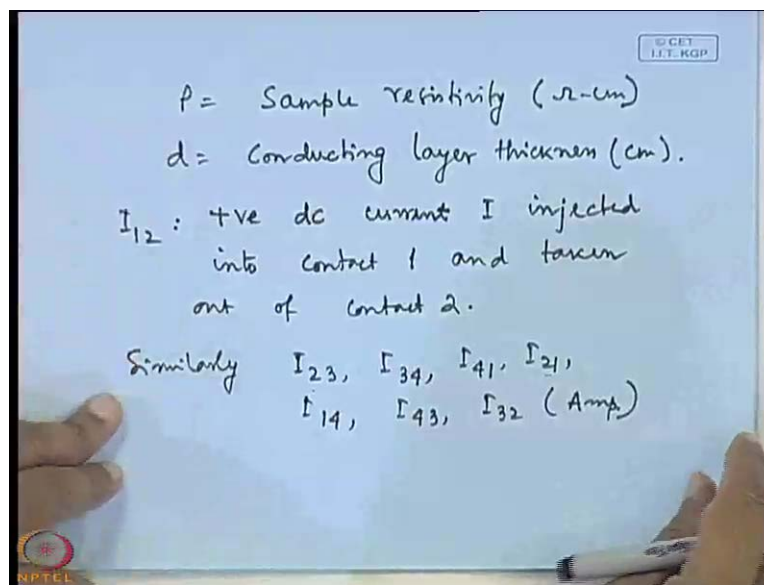 © CET
I.I.T. KGP
ρ = Sample resistivity (Ω-cm)
d = Conducting layer thickness (cm).
I₁₂ : +ve dc current I injected
into contact 1 and taken
out of contact 2.
Similarly I₂₃, I₃₄, I₄₁, I₂₁,
I₁₄, I₄₃, I₃₂ (Amp)
NPTEL